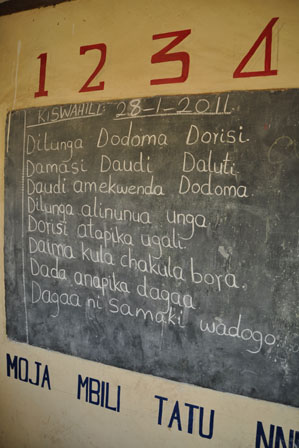 1 2 3 4
KISWAHILI 28-1-2011
Dilunga Dodoma Dorisi.
Damasi Daudi Daluti
Daudi amekwenda Dodoma.
Dilunga alinunua unga
Dorisi atapika ugali
Daima kula chakula bora.
Dada anapika dagaa
Dagaa ni samaki wadogo.
MOJA MBILI TATU